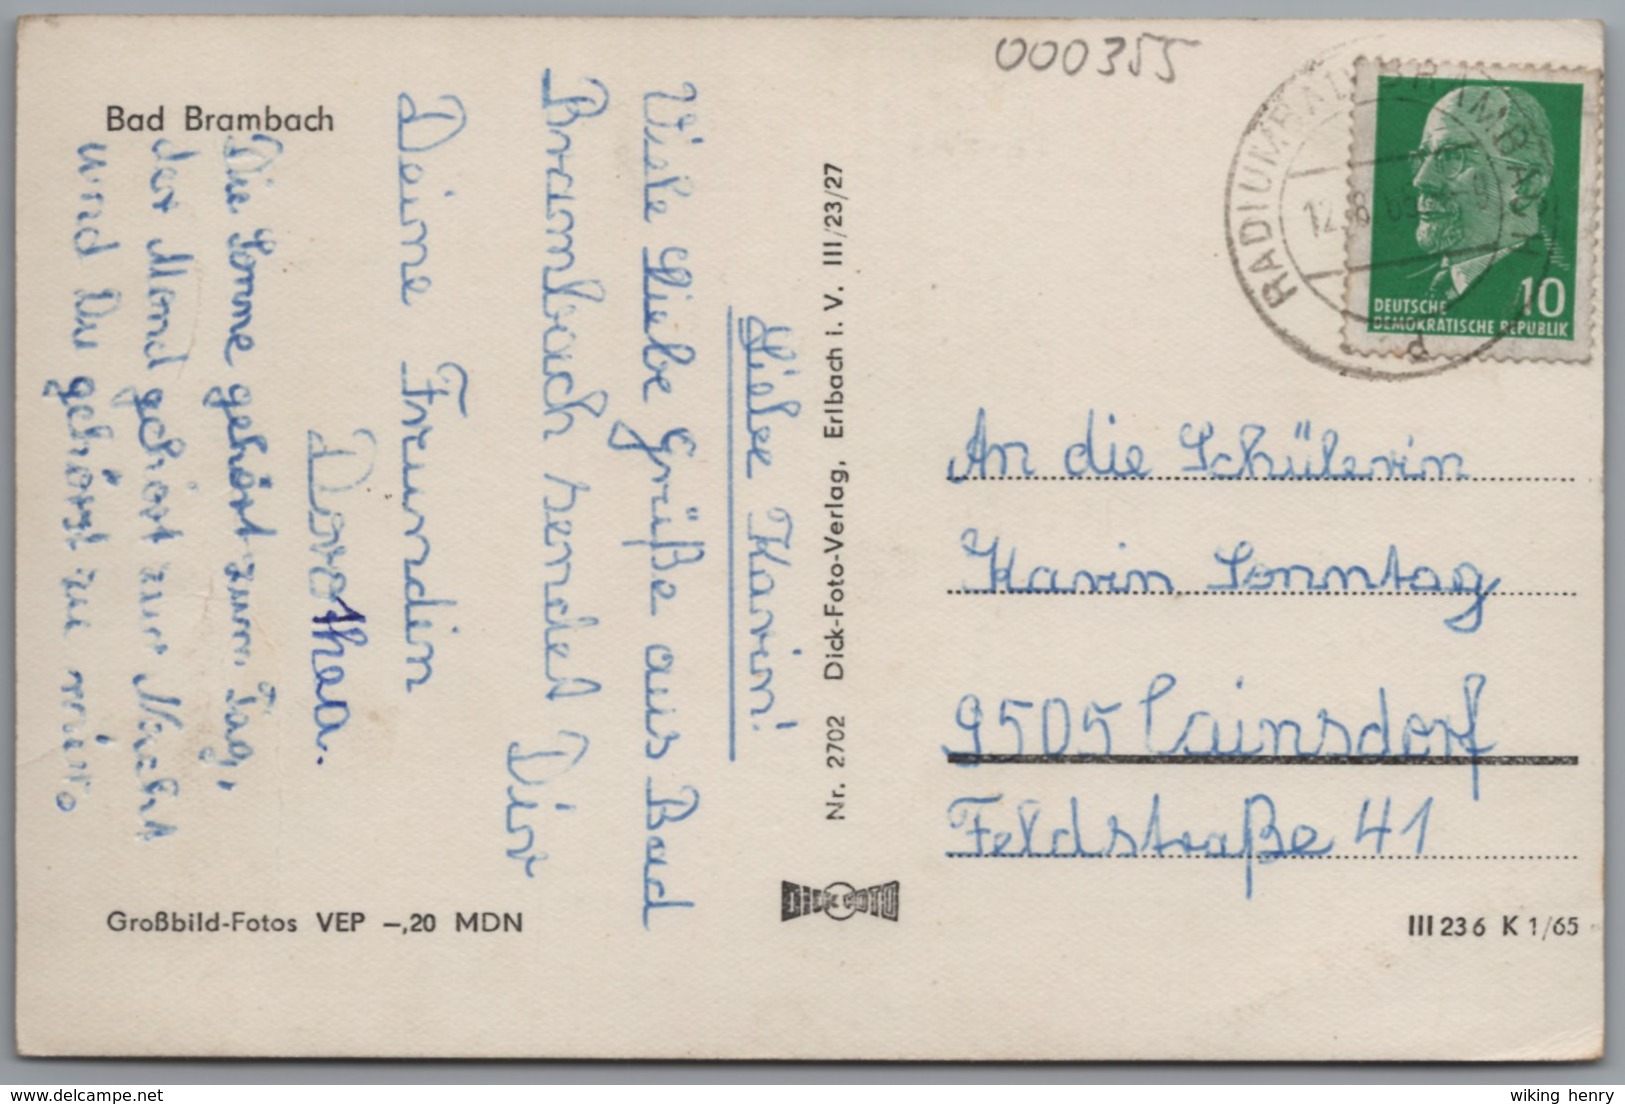 000355
Bad Brambach
Liebe Karin!
Viele liebe Grüße aus Bad
Brambach sendet Dir
Deine Freundin
Dorothea.
Die Sonne gehört zum Tag,
der Mond gehört zur Nacht
und Du gehörst zu mir.
Großbild-Fotos VEP –,20 MDN
Nr. 2702 Dick-Foto-Verlag, Erlbach i. V. III/23/27
DICK FOTO
RADIUMBAD BRAMBACH
12.8.65
DEUTSCHE
DEMOKRATISCHE REPUBLIK
10
An die Schülerin
Karin Sonntag
9505 Cainsdorf
Feldstraße 41
III 23 6 K 1/65
delcampe.net
wiking henry